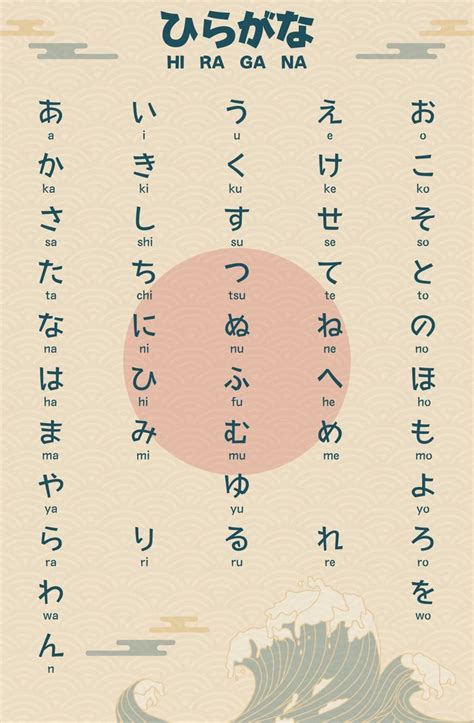 ひらがな
HI RA GA NA
あ い う え お
a i u e o
か き く け こ
ka ki ku ke ko
さ し す せ そ
sa shi su se so
た ち つ て と
ta chi tsu te to
な に ぬ ね の
na ni nu ne no
は ひ ふ へ ほ
ha hi fu he ho
ま み む め も
ma mi mu me mo
や ゆ よ
ya yu yo
ら り る れ ろ
ra ri ru re ro
わ を
wa wo
ん
n